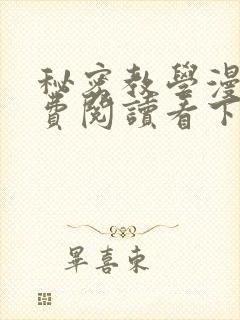 秘密教學漫
費閱讀看下
畢喜東